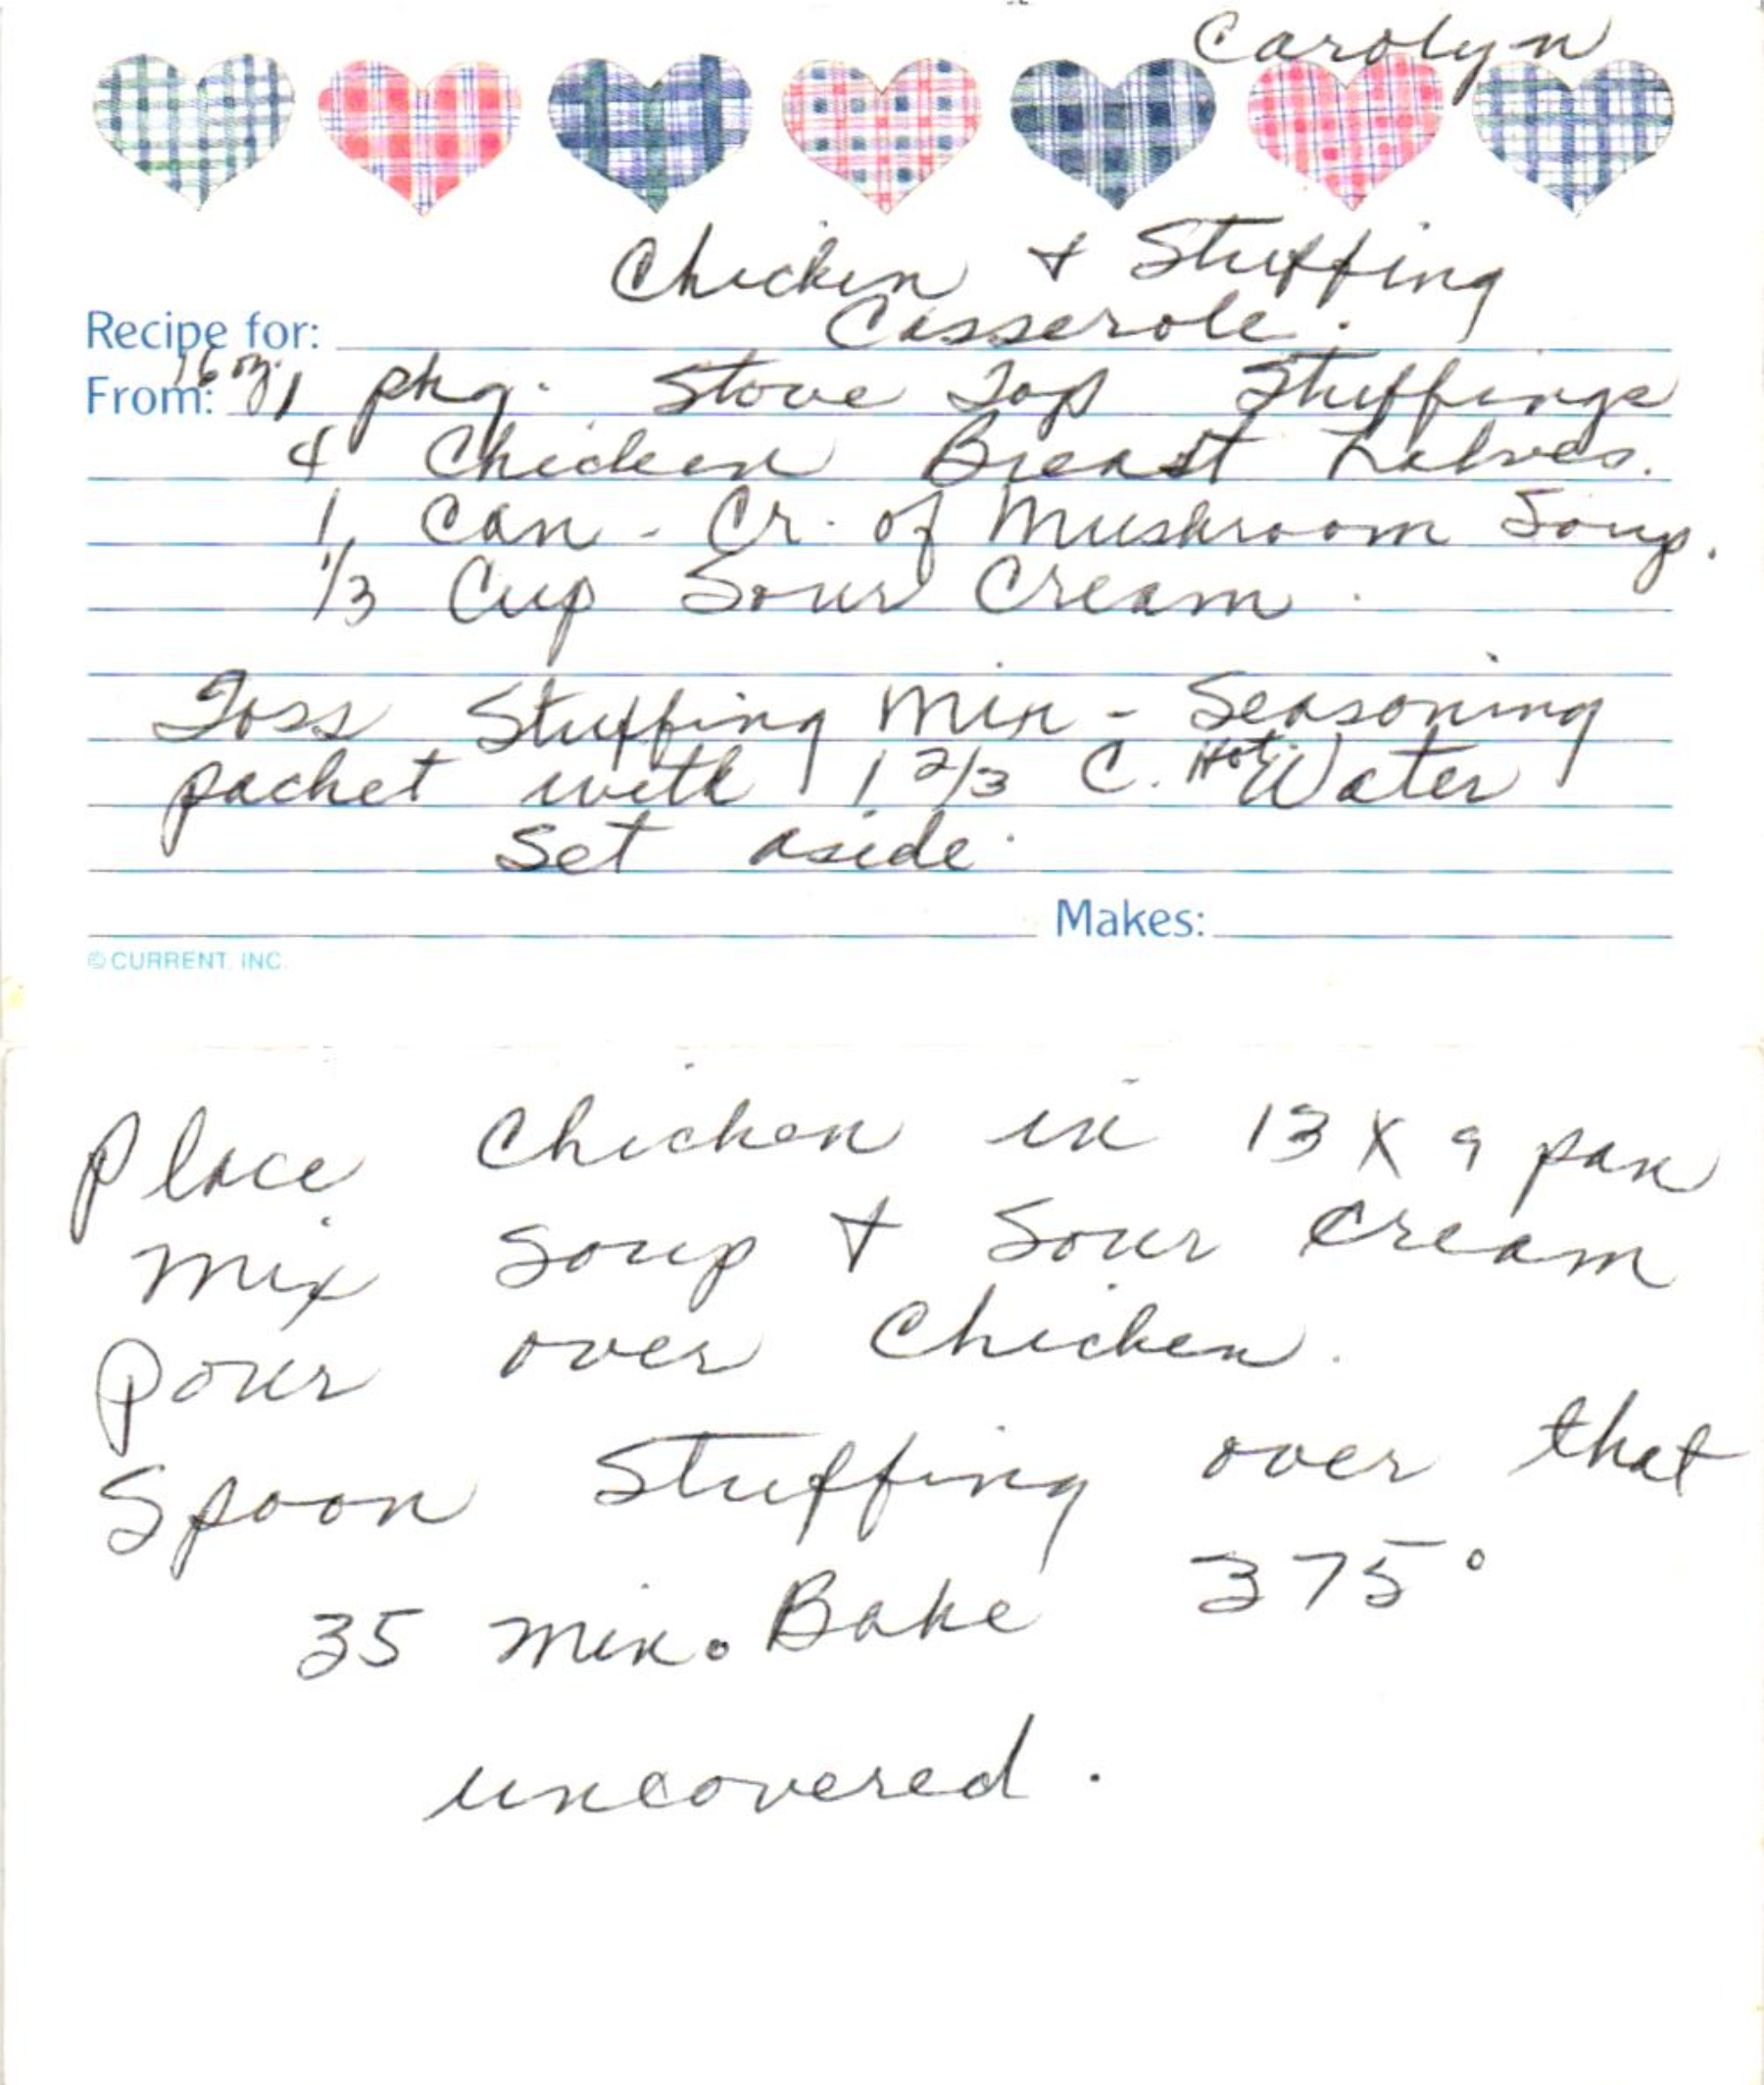 Carolyn
Chicken + Stuffing
Recipe for: Casserole.
From: 16 oz. 1 pkg. Stove Top Stuffings
4 Chicken Breast halves.
1 Can - Cr. of Mushroom Soup.
1/3 Cup Sour Cream.
Toss Stuffing Mix - Seasoning
packet with 1 2/3 C. Hot Water
Set aside.
Makes:
© CURRENT, INC.
Place Chicken in 13 X 9 pan
Mix Soup + Sour Cream
Pour over Chicken.
Spoon Stuffing over that
35 min. Bake 375°
uncovered.